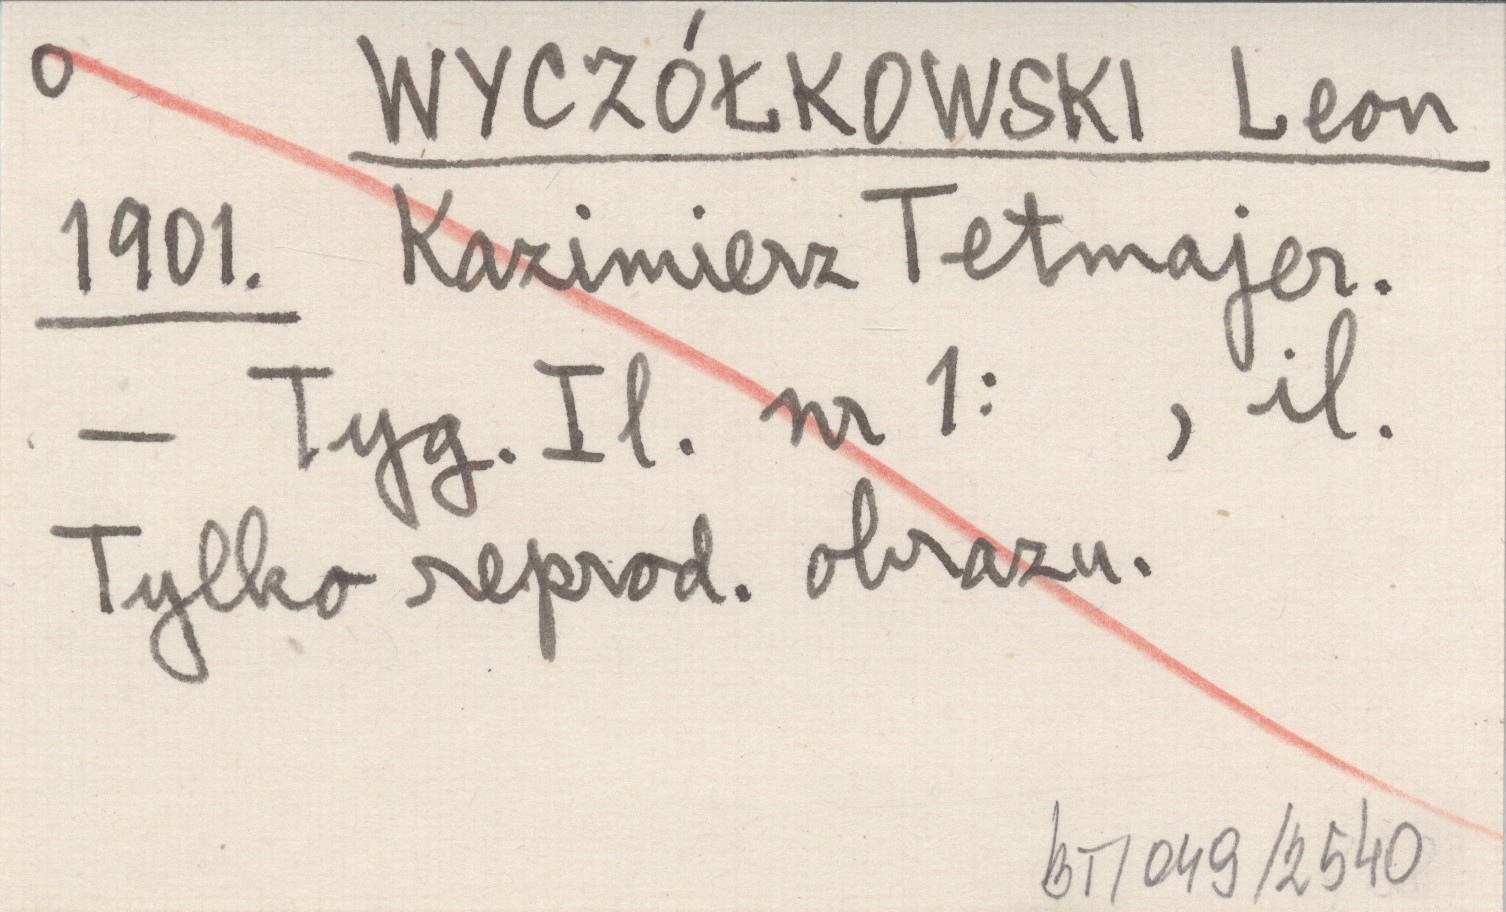 o WYCZÓŁKOWSKI Leon
1901. Kazimierz Tetmajer.
— Tyg. Il. nr 1: , il.
Tylko reprod. obrazu.
BT/049/2540